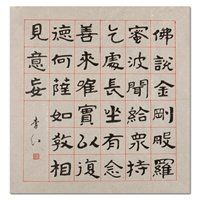 佛說金剛般羅
蜜波聞給衆持
乞處長坐有念
善來實以復
德何薩如教相
見意妄
李江